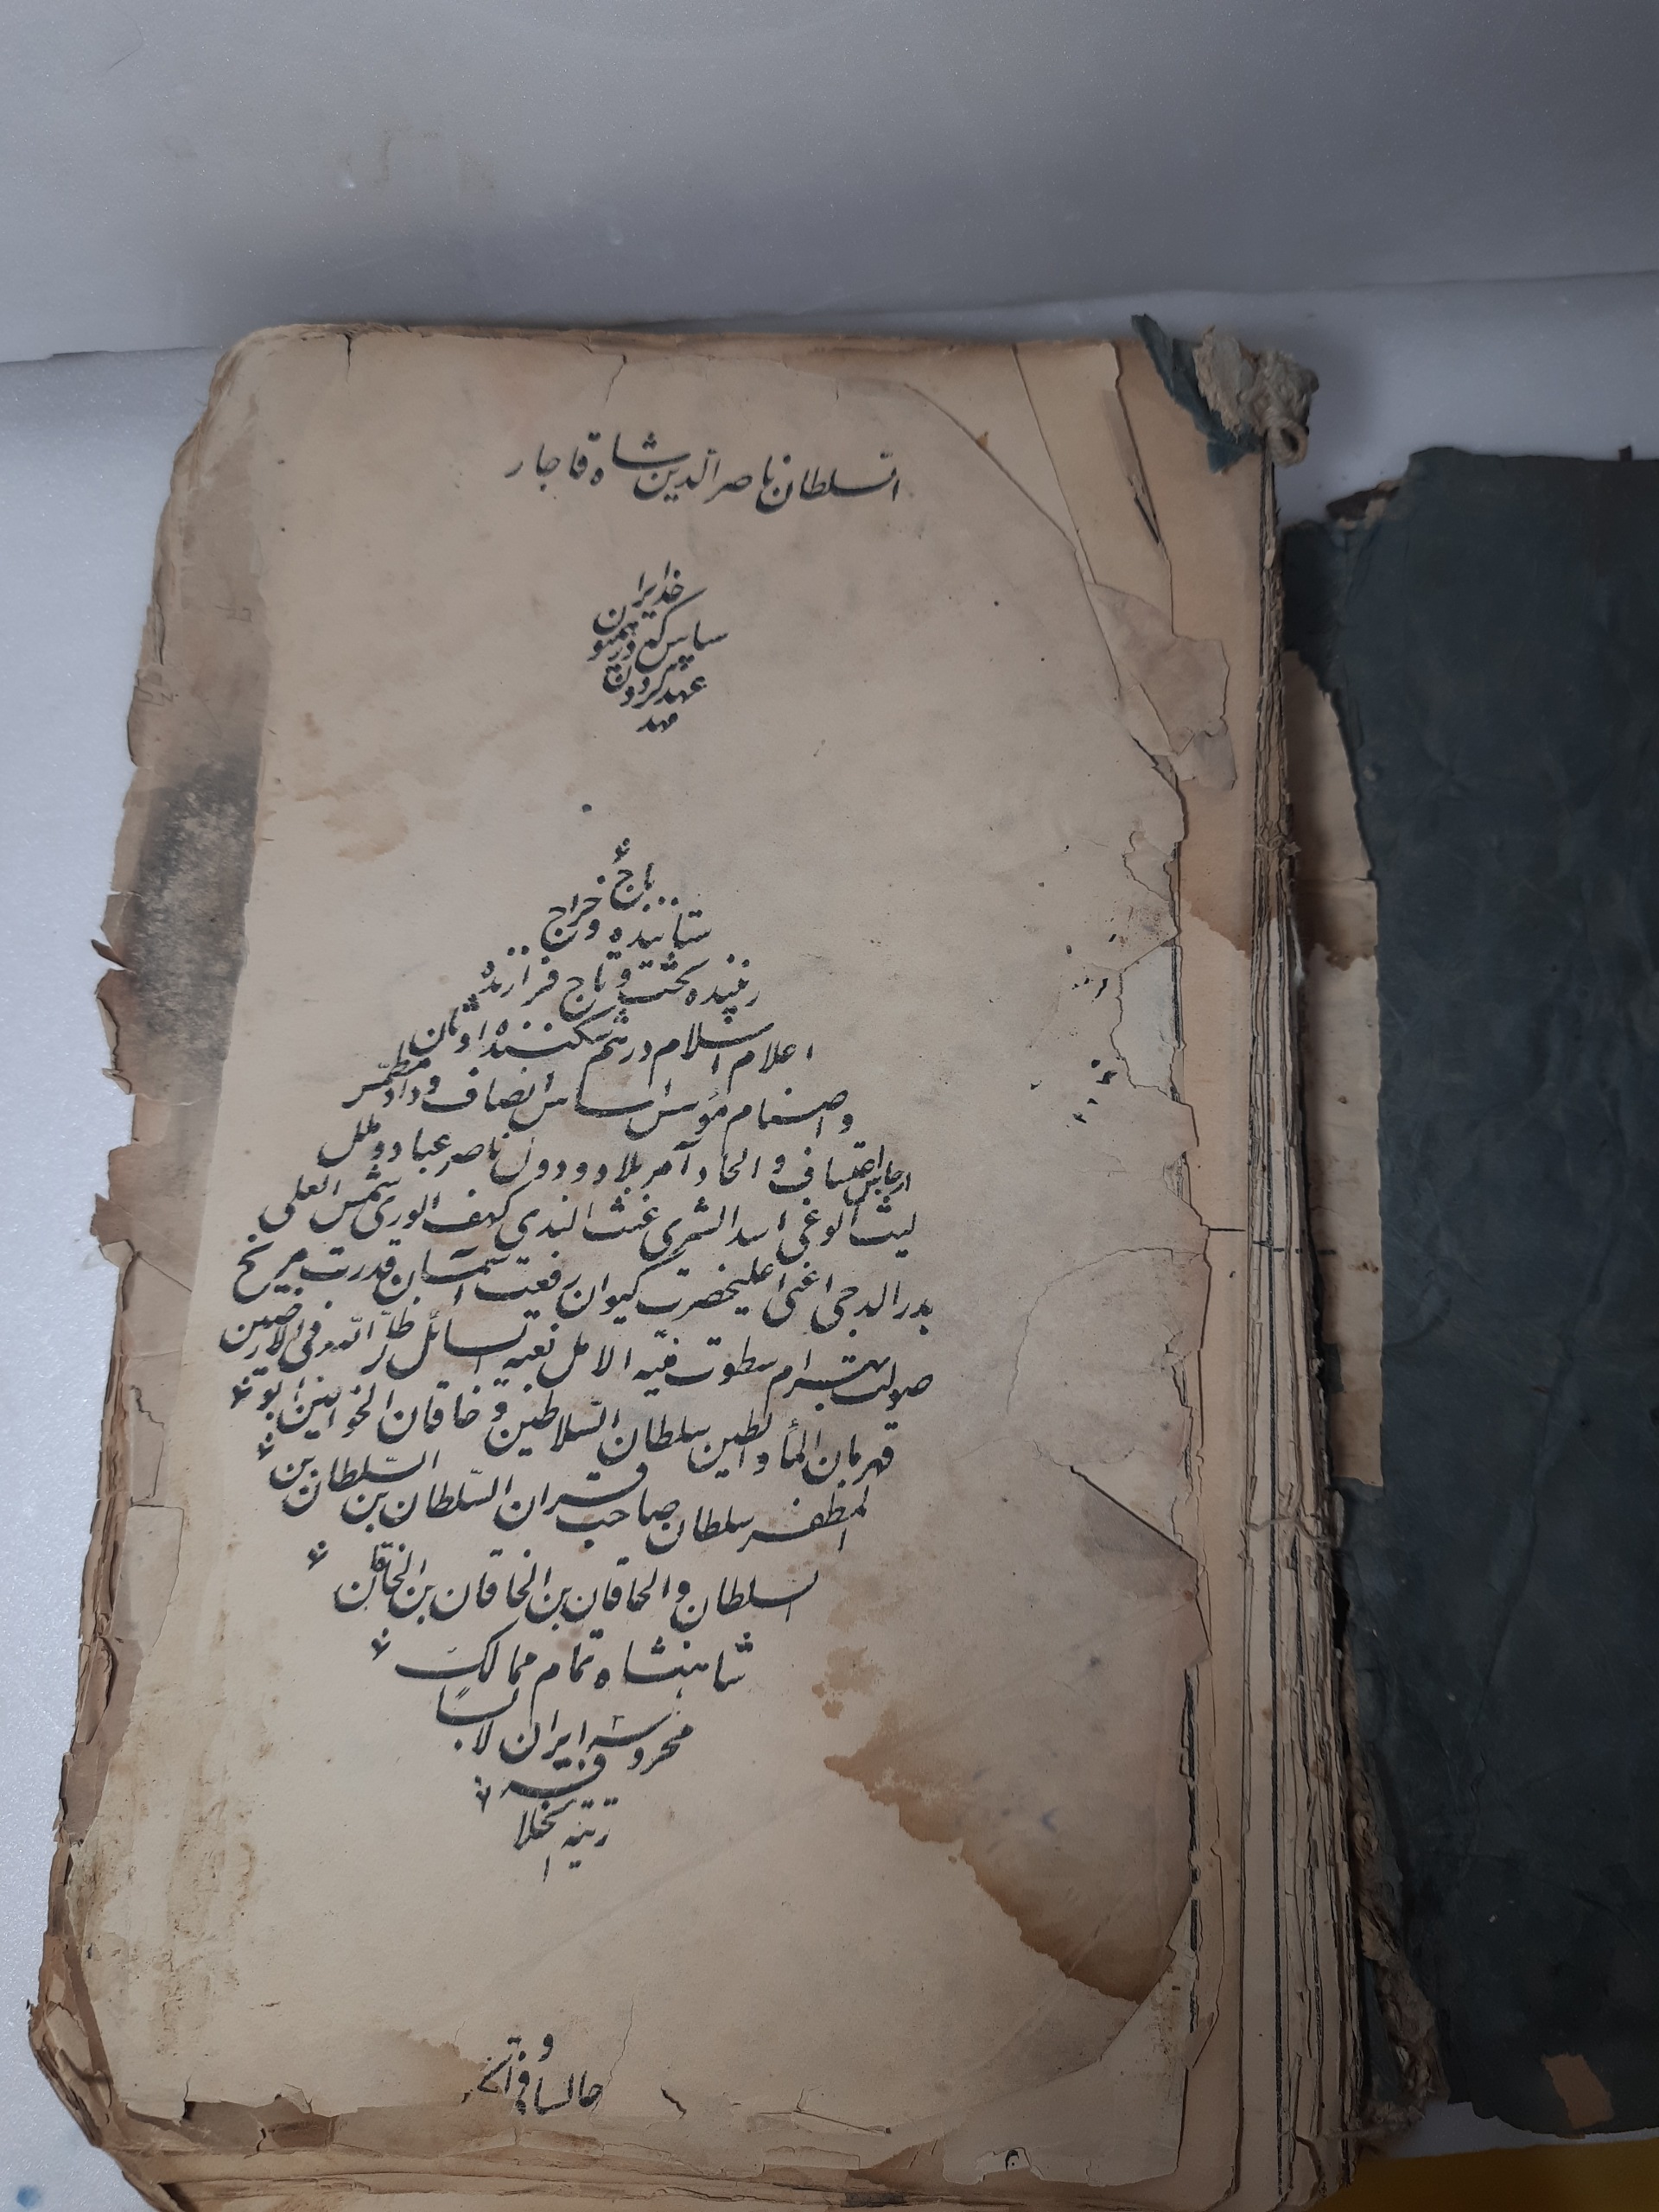 السلطان ناصر الدین شاه قاجار
خدایرا
سپاس که درین همیون
عهد گردون
مهد
باج
ستاننده و خراج
بخشنده تخت و تاج فرازنده
اعلام اسلام درهم شکننده اوثان
و اصنام مؤسس اساس انصاف و داد مطمر
ارجاس اعتساف و الحاد آمر بلاد و دول ناصر عباد و ملل
لیث الوغی اسد الشری غیث الندی کهف الوری شمس العلی
بدر الدجی اعنی اعلیحضرت کیوان رفعت آسمان قدرت مریخ
صولت بهرام سطوت فیه الامل نعیه السائل ظل الله فی الارضین
قهرمان الماء والطین سلطان السلاطین و خاقان الخواقین ابو
المظفر سلطان صاحب قران السلطان بن السلطان بن
السلطان والخاقان بن الخاقان بن الخاقان
شاهنشاه تمام ممالک
محروسه ایران لا